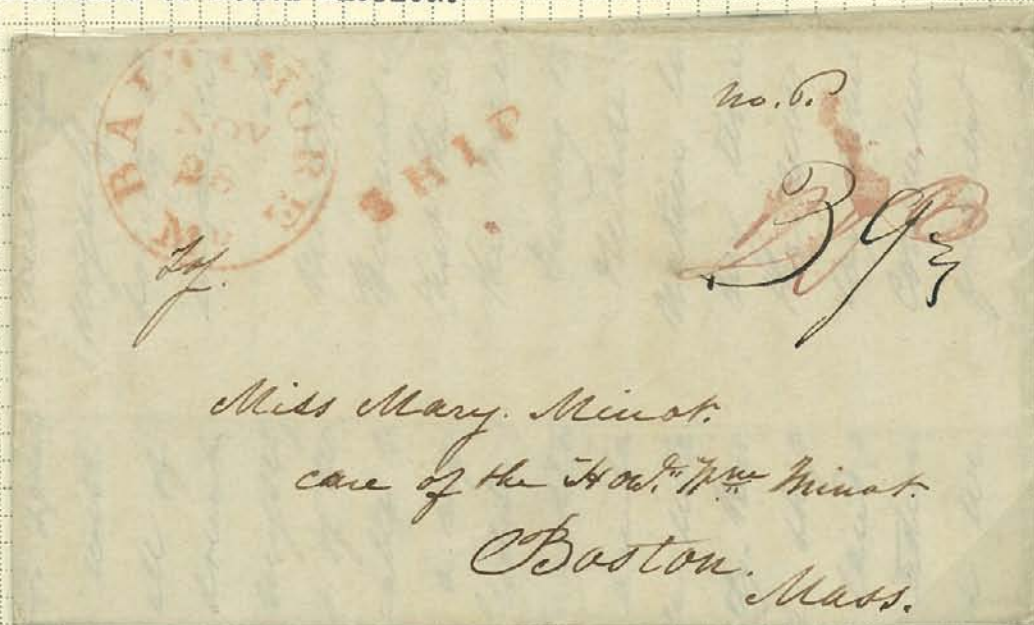 BALTIMORE Md
NOV
28
SHIP
no. P.
Miss Mary. Minot.
care of the Hon. Wm Minot.
Boston.
Mass.